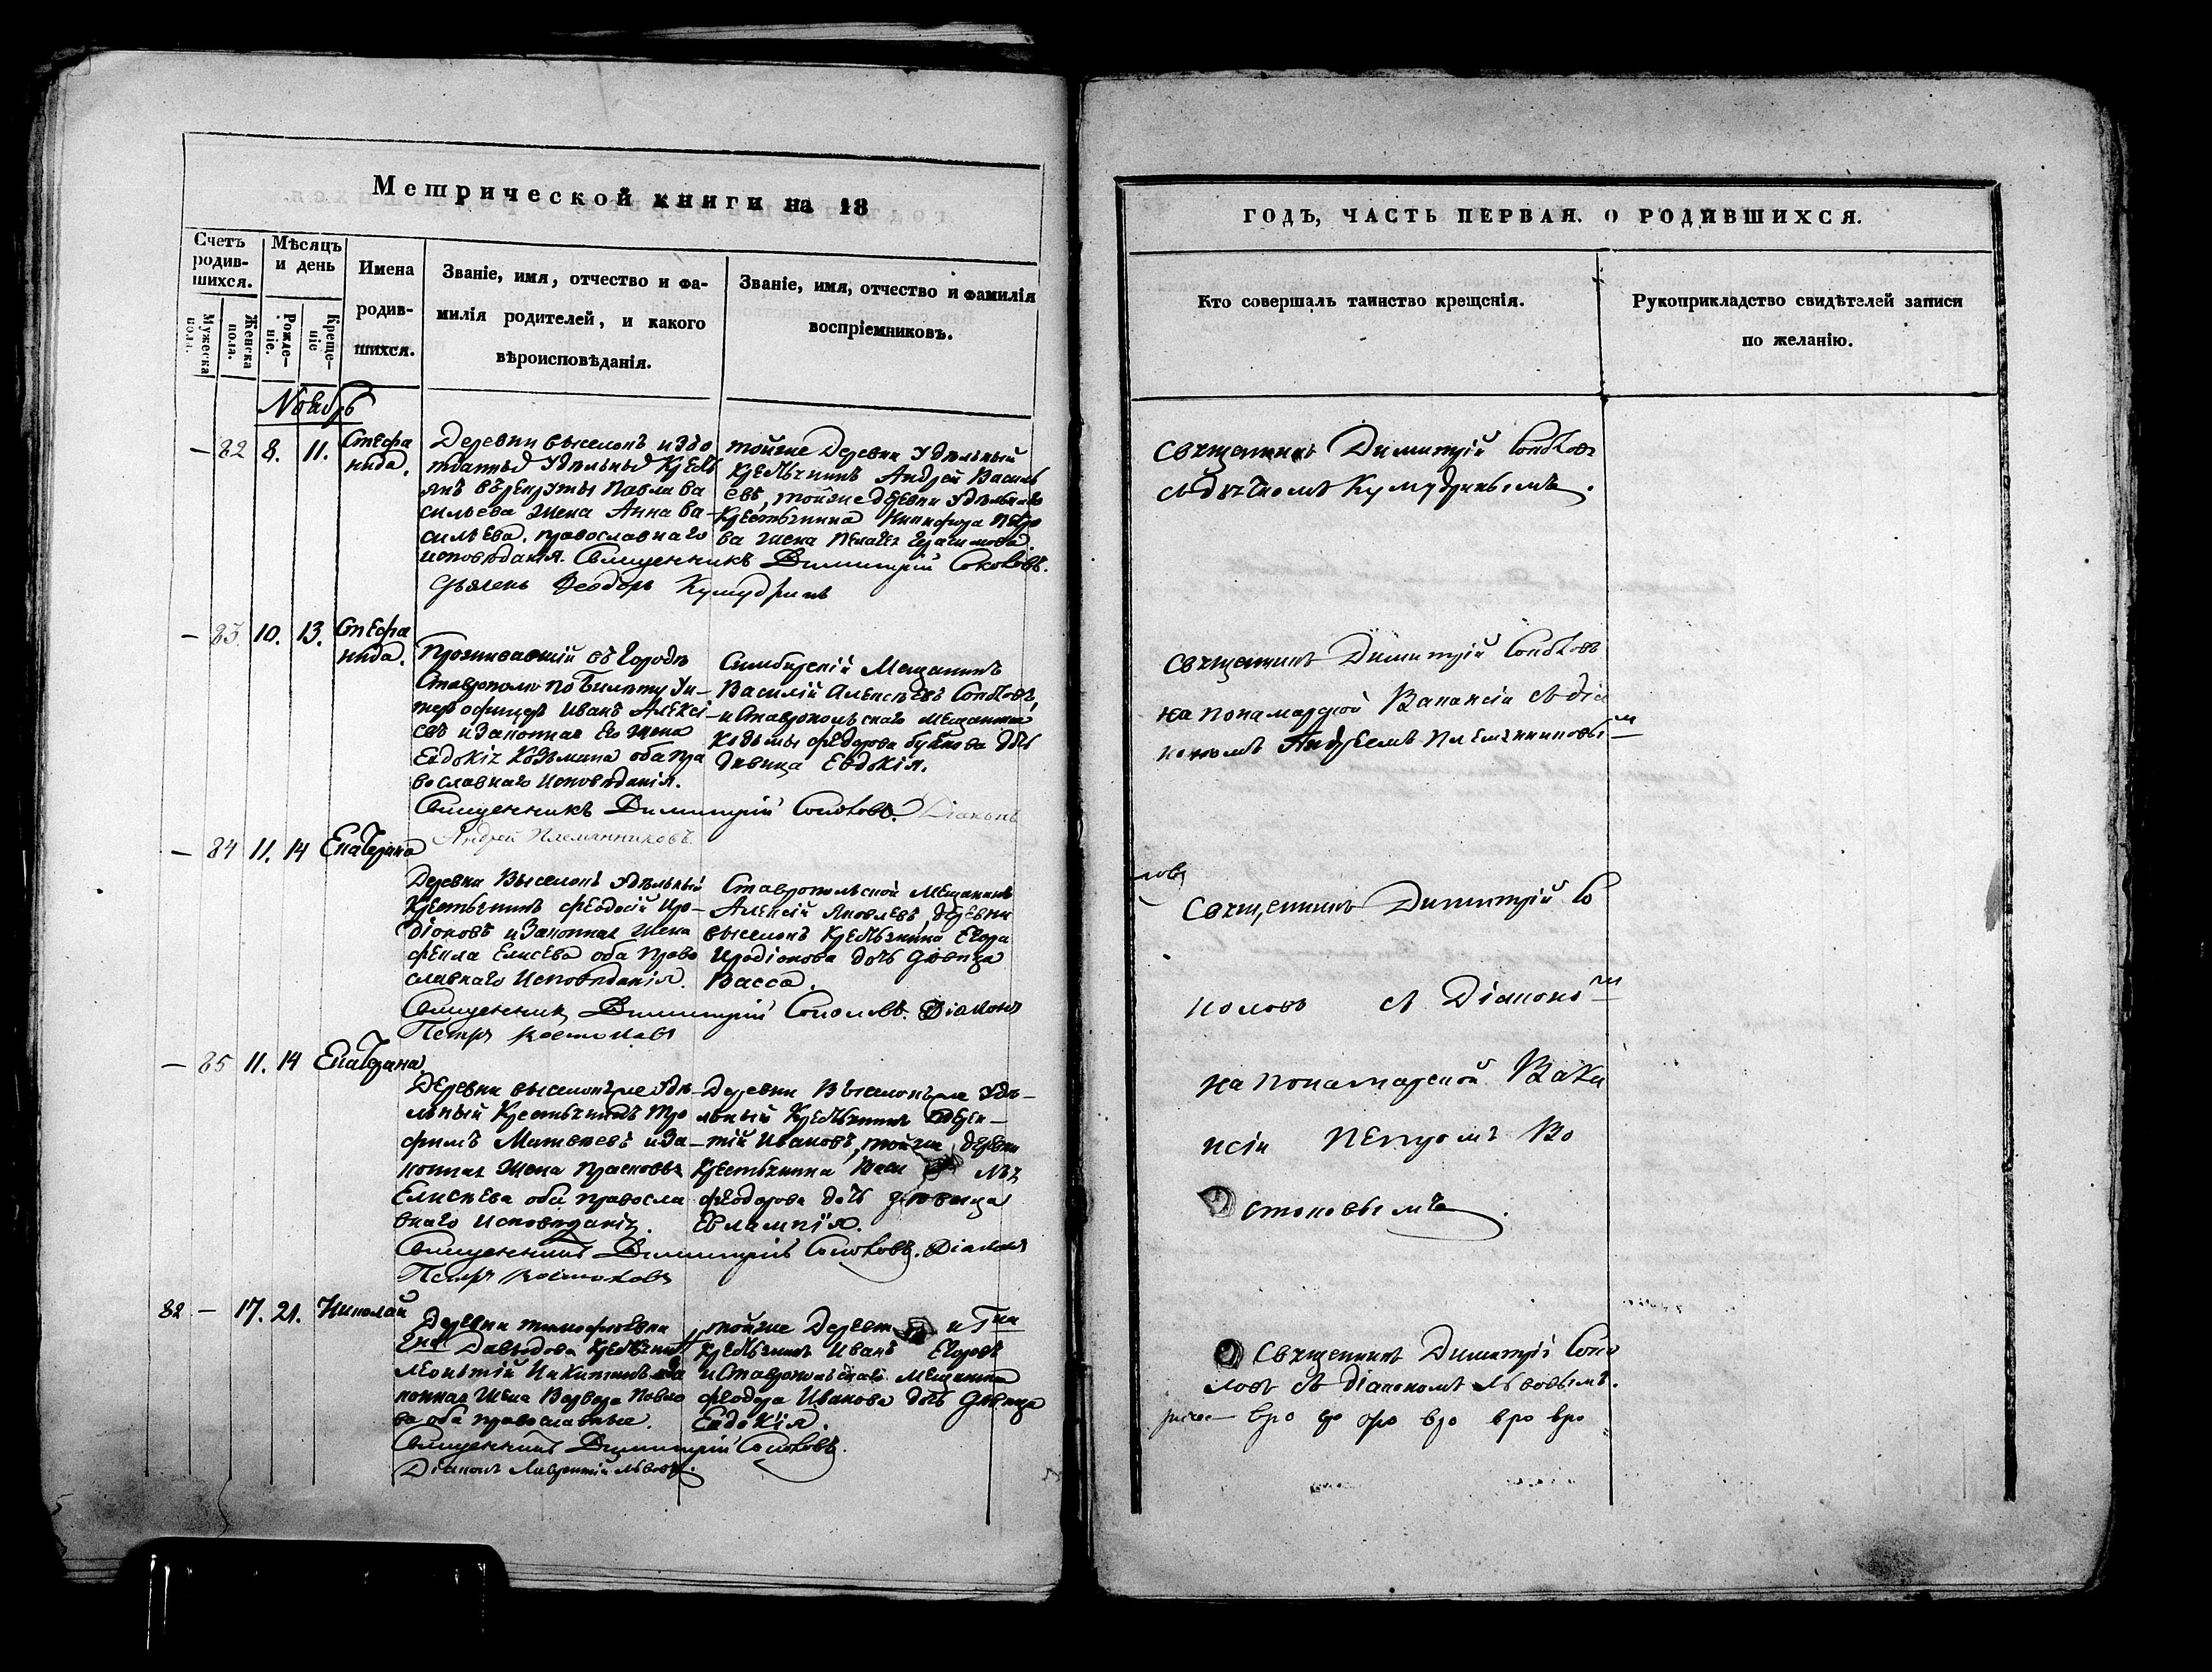 Метрической книги на 18
Счетъ родив-шихся.
Мужеска пола.
Женска пола.
Мѣсяцъ и день
Рожде-ніе.
Креще-ніе
Имена родив-шихся.
Званіе, имя, отчество и фа-
милія родителей, и какого
вѣроисповѣданія.
Званіе, имя, отчество и фамилія
воспріемниковъ.
Ноябрь
— 82 8. 11. Стефа
нида.
Деревни выселокъ изъ о
тданный Удѣльный Крестъ
янъ въ рекруты Павла Ва
сильева жена Анна Ва-
сильева. православнаго
исповѣданія. Священникъ Димитрій Соколовъ.
Дьяконъ Феодоръ Кумудринъ
тойже Деревни Удѣльный
крестьянинъ Андрей Василь
евъ, тойже деревни Удѣльнаго
крестьянина Никифора Петро
ва жена Пелагея Герасимова
— 83 10. 13. Стефа
нида.
Проживавшій въ городѣ
Ставрополѣ по билету Ун-
теръ офицеръ Иванъ Алексі-
евъ и законная его жена
Евдокія Козьмина оба пра
вославнаго исповѣданія.
Священникъ Димитрій Соколовъ. Діаконъ
Андрей Племянниковъ.
Симбирскій Мещанинъ
Василій Алексѣевъ Соколовъ,
и Ставропольскаго мещанина
Козьмы Федорова дочь
дѣвица Евдокія.
— 84 11. 14 Екатерина
Деревни Выселокъ Удѣльный
Крестьянинъ Феодосій Иро-
діоновъ и законная жена
Фекла Елисѣева оба право
славнаго исповѣданія.
Священникъ Димитрій Соколовъ. Діаконъ
Петръ Востоковъ
Ставропольской Мещанинъ
Алексій Яковлевъ, деревни
выселокъ крестьянина Егора
Иродіонова дочь дѣвица
Васса.
— 85 11. 14 Екатерина.
Деревни выселокъ Удѣ-
льный Крестьянинъ Тро
фимъ Матвѣевъ и за-
конная жена Прасковья
Елисѣева оба правосла
внаго исповѣданія.
Священникъ Димитрій Соколовъ. Діаконъ
Петръ Востоковъ
Деревни Выселокъ Удѣ-
льный Крестьянинъ
Ивановъ, тойже деревни
Крестьянина
Феодорова дочь дѣвица
Евлампія.
82 — 17. 21. Николай
Деревни Тимофѣевки
Давыдова Крестьянинъ
Никитинъ за
конная жена Варвара Павло
ва оба православные.
Священникъ Димитрій Соколовъ.
Діаконъ Лаврентій Львовъ.
тойже Деревни
крестьянинъ Иванъ Егоровъ
и Ставропольскаго Мещанина
Феодора Иванова дочь дѣвица
Евдокія.
ГОДЪ, ЧАСТЬ ПЕРВАЯ. О РОДИВШИХСЯ.
Кто совершалъ таинство крещенія.
Рукоприкладство свидѣтелей записи
по желанію.
Священникъ Димитрій Соколовъ
съ дьякономъ Кумудринымъ.
Священникъ Димитрій Соколовъ
на понамарской Вакансіи съ діа
кономъ Андреемъ Племянниковы
мъ
Священникъ Димитрій Со
коловъ съ Діакономъ
на понамарской Вака
нсіи Петромъ Во
стоковымъ.
Священникъ Димитрій Соко
ловъ съ діакономъ Львовымъ.